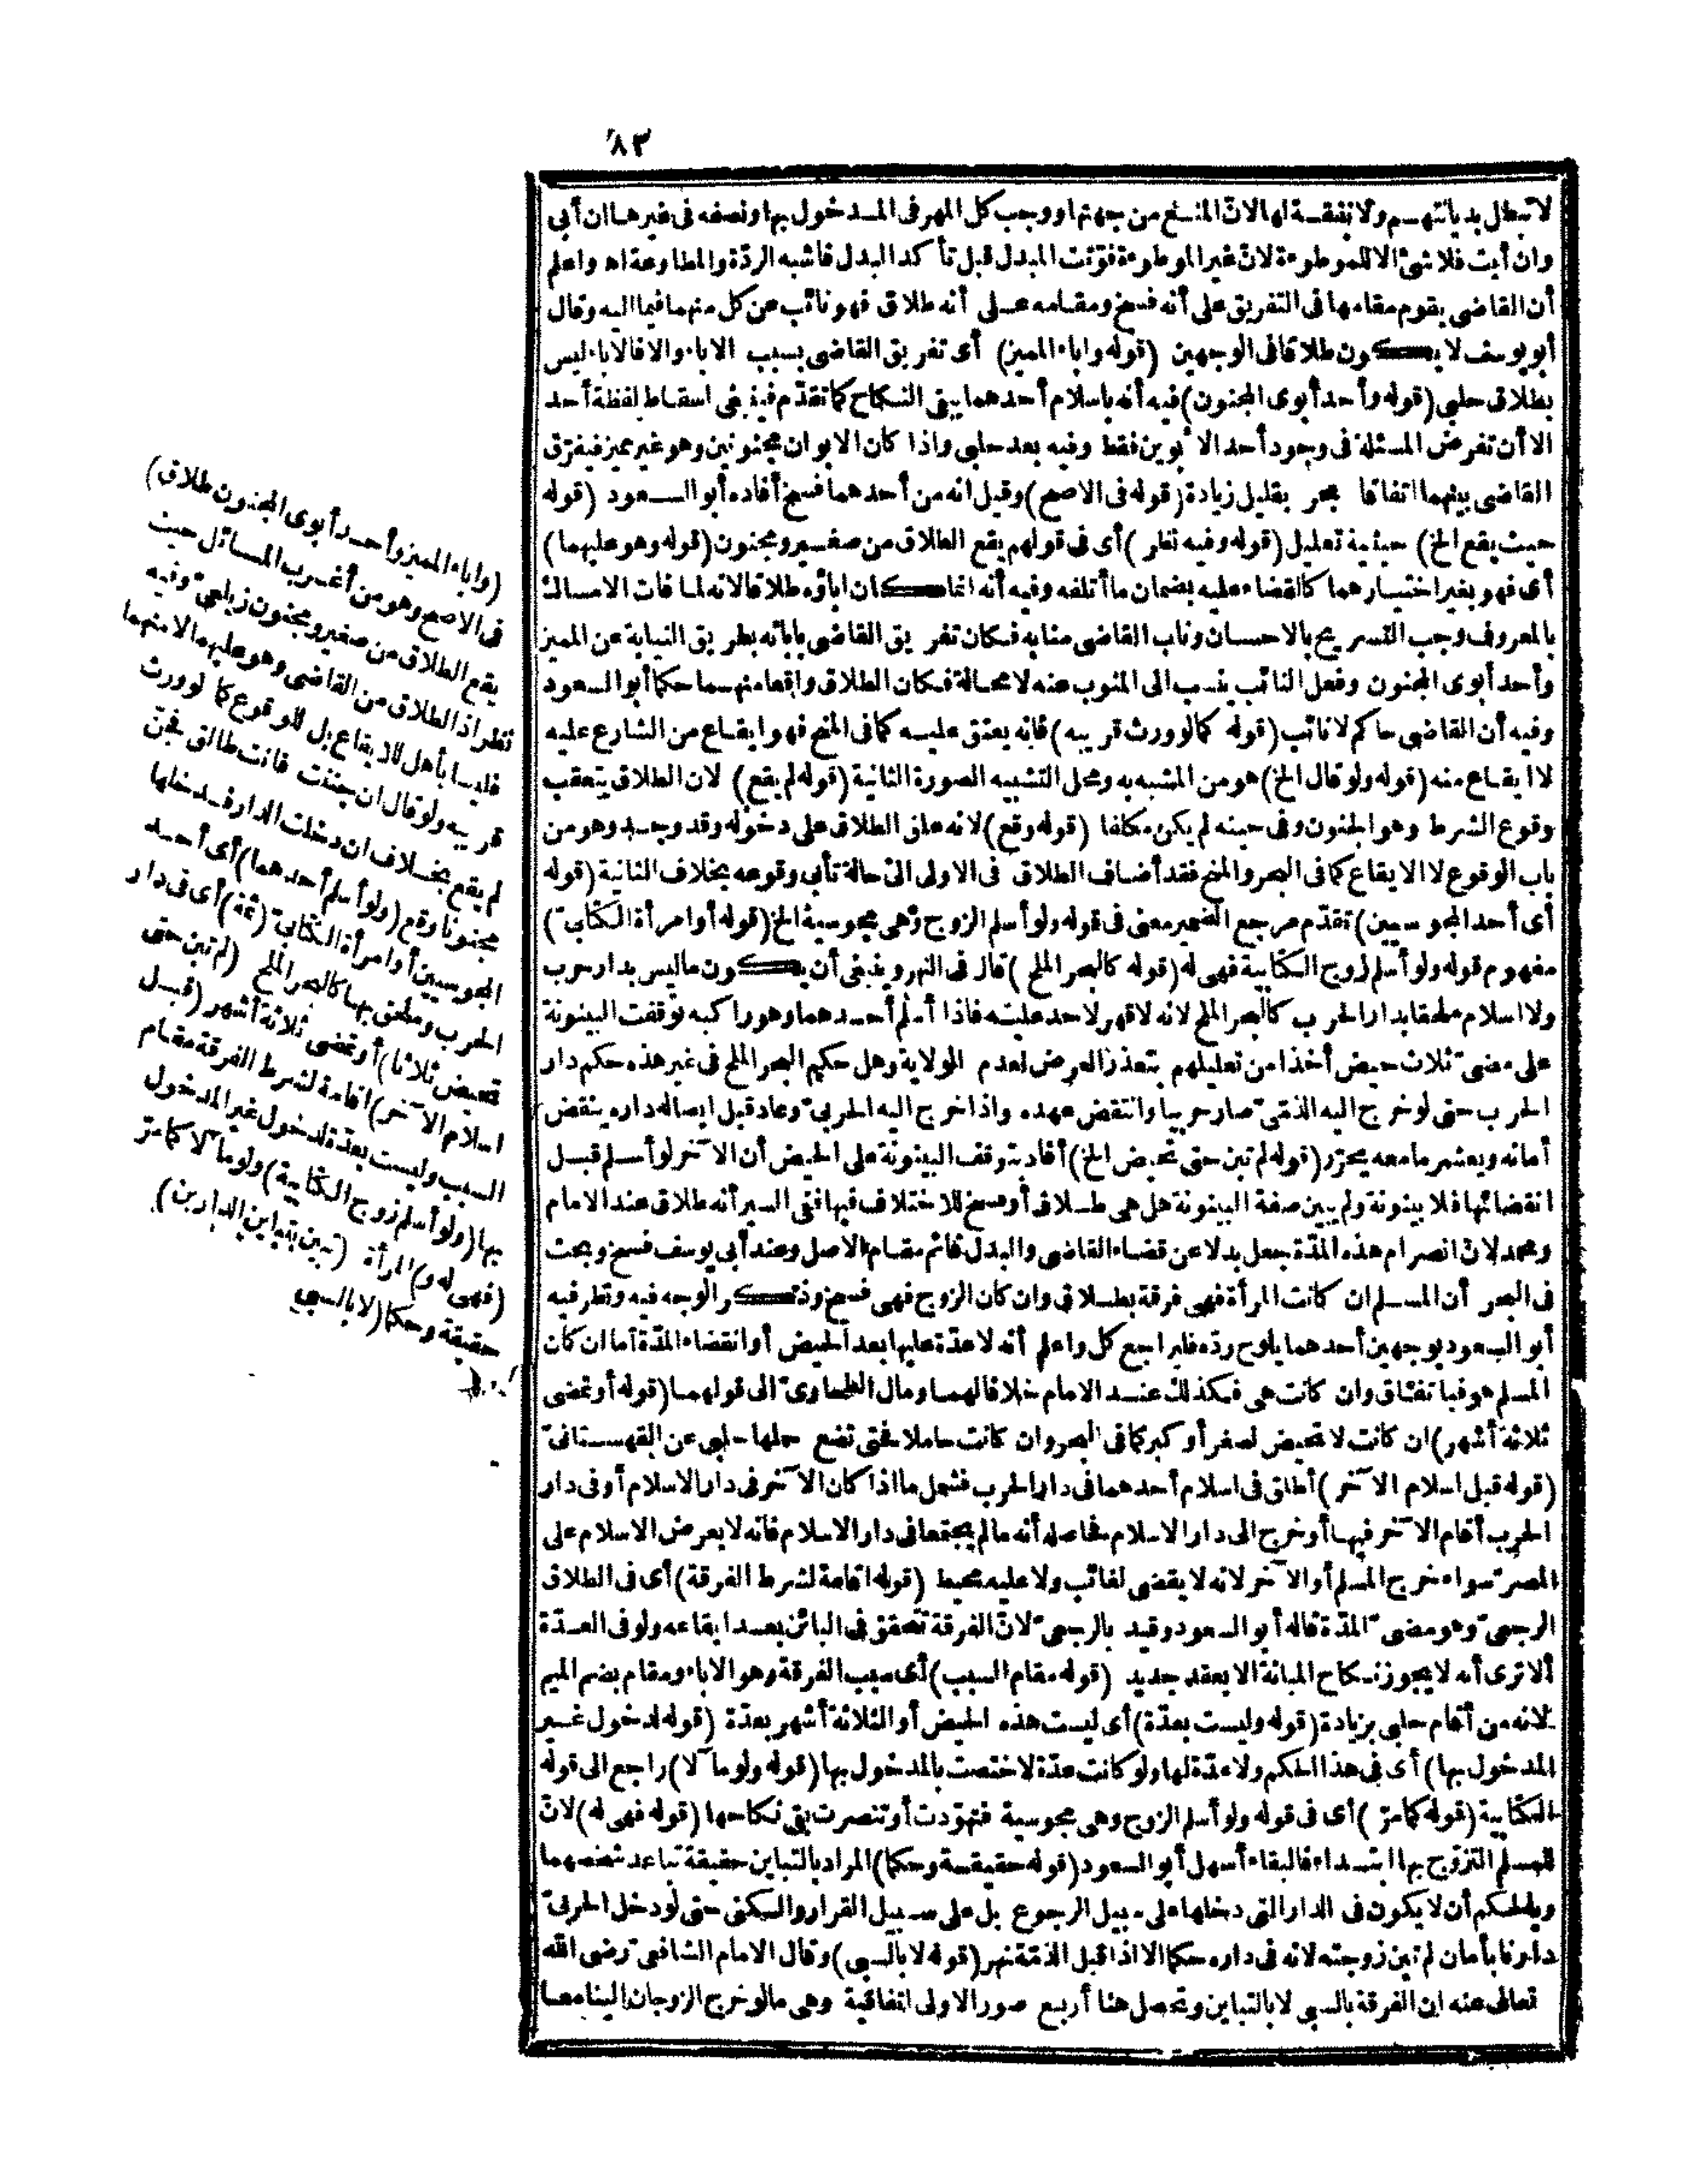 ٨٣
لا تبطل بديانتهم ولا نفقة لها لانّ المنع من جهتها ووجب كل المهر فى المدخول بها ونصفه فى غيرها ان أبى
وان أبت فلا شئ الا للموطوءة لانّ غير الموطوءة فوّتت المبدل قبل تأكد البدل فاشبه الردّة والمطاوعة اه واعلم
أن القاضى يقوم مقامها فى التفريق على أنه فسخ ومقامه عـلى أنه طلاق فهو نائب عن كل منهما فيما اليه وقال
أبو يوسف لا يكون طلاقا فى الوجهين (قوله واباء المميز) أى تفريق القاضى بسبب الاباء والا فالاباء ليس
بطلاق حلبى (قوله وأحد أبوى المجنون) فيه أنه باسلام أحدهما يبقى النكاح كما تقدّم فينبغى اسقاط لفظة أحد
الا أن تفرض المسئلة فى وجود أحد الابوين فقط وفيه بعد حلبى واذا كان الابوان مجنونين وهو غير مميز فيفرّق
القاضى بينهما اتفاقا بحر بقليل زيادة (قوله فى الاصح) وقيل انه من أحدهما فسخ أفاده أبو السعود (قوله
حيث يقع الخ) حيثية تعليل (قوله وفيه نظر) أى فى قولهم يقع الطلاق من صغير ومجنون (قوله وهو عليهما)
أى فهو بغير اختيارهما كالقضاء عليه بضمان ما أتلفه وفيه أنه انما كان اباؤه طلاقا لانه لما فات الامساك
بالمعروف وجب التسريح بالاحسان وناب القاضى منابه فكان تفريق القاضى بابائه بطريق النيابة عن المميز
وأحد أبوى المجنون وفعل النائب ينسب الى المنوب عنه لا محالة فكان الطلاق واقعا منهما حكما أبو السعود
وفيه أن القاضى حاكم لا نائب (قوله كما لو ورث قريبه) فانه يعتق عليه كما فى المنح فهو ايقاع من الشارع عليه
لا ايقاع منه (قوله ولو قال الخ) هو من المشبه به ومحل التشبيه الصورة الثانية (قوله لم يقع) لان الطلاق يتعقب
وقوع الشرط وهو الجنون وفى حينه لم يكن مكلفا (قوله وقع) لانه علق الطلاق على دخوله وقد وجد وهو من
باب الوقوع لا الايقاع كما فى البحر والمنح فقد أضاف الطلاق فى الاولى الى حالة تأبى وقوعه بخلاف الثانية (قوله
أى أحد المجوسيين) تقدّم مرجع الضمير معنى فى قوله ولو أسلم الزوج وهى مجوسية الخ (قوله أو امرأة الكتابىّ)
مفهوم قوله ولو أسلم زوج الكتابية فهى له (قوله كالبحر الملح) قال فى النهر وينبغى أن يكون ما ليس بدار حرب
ولا اسلام ملحقا بدار الحرب كالبحر الملح لانه لا قهر لاحد عليه فاذا أسلم أحدهما وهو راكبه توقفت البينونة
على مضىّ ثلاث حيض أخذا من تعليلهم بتعذر العرض لعدم الولاية وهل حكم البحر الملح فى غير هذه حكم دار
الحرب حتى لو خرج اليه الذمّى صار حربيا وانتقض عهده واذا خرج اليه الحربىّ وعاد قبل ايصاله داره ينتقض
أمانه ويعشر ما معه يحرّر (قوله لم تبن حتى تحيض الخ) أفاد بتوقف البينونة على الحيض أن الآخر لو أسلم قبل
انقضائها فلا بينونة ولم يبين صفة البينونة هل هى طلاق أو فسخ للاختلاف فيها ففى السير أنه طلاق عند الامام
ومحمد لانّ انصرام هذه المدّة جعل بدلا عن قضاء القاضى والبدل قائم مقام الاصل وعند أبى يوسف فسخ وبحث
فى البحر أن المسلم ان كانت المرأة فهى فرقة بطلاق وان كان الزوج فهى فسخ وذكر الوجه فيه ونظر فيه
أبو السعود بوجهين أحدهما يلوح ردّه فليراجع كل واعلم أنه لا عدّة عليها بعد الحيض أو انقضاء المدّة أما ان كان
المسلم هو فباتفاق وان كانت هى فكذلك عند الامام خلافا لهما ومال الطحاوىّ الى قولهما (قوله أو تمضى
ثلاثة أشهر) ان كانت لا تحيض لصغر أو كبر كما فى البحر وان كانت حاملا فحتى تضع حملها حلبى عن القهستانىّ
(قوله قبل اسلام الآخر) أطلق فى اسلام أحدهما فى دار الحرب فشمل ما اذا كان الآخر فى دار الاسلام أو فى دار
الحرب أقام الآخر فيها أو خرج الى دار الاسلام فحاصله أنه ما لم يجتمعا فى دار الاسلام فانه لا يعرض الاسلام على
المصرّ سواء خرج المسلم أو الآخر لانه لا يقضى لغائب ولا عليه محيط (قوله اقامة لشرط الفرقة) أى فى الطلاق
الرجعىّ وهو مضىّ المدّة قاله أبو السعود وقيد بالرجعىّ لانّ الفرقة تتحقق فى البائن بعد ايقاعه ولو فى العدّة
ألا ترى أنه لا يجوز نكاح المبانة الا بعقد جديد (قوله مقام السبب) أى سبب الفرقة وهو الاباء ومقام بضم الميم
لانه من أقام حلبى بزيادة (قوله وليست بعدّة) أى ليست هذه الحيض أو الثلاثة أشهر بعدّة (قوله لدخول غير
المدخول بها) أى فى هذا الحكم ولا عدّة لها ولو كانت عدّة لاختصت بالمدخول بها (قوله ولو مآلا) راجع الى قوله
الكتابية (قوله كما مرّ) أى فى قوله ولو أسلم الزوج وهى مجوسية فتهوّدت أو تنصرت بقى نكاحها (قوله فهى له) لانّ
للمسلم التزوّج بها ابتداء فالبقاء أسهل أبو السعود (قوله حقيقة وحكما) المراد بالتباين حقيقة تباعد شخصهما
وبالحكم أن لا يكون فى الدار التى دخلها على سبيل الرجوع بل على سبيل القرار والسكنى حتى لو دخل الحربىّ
دارنا بأمان لم تبن زوجته لانه فى داره حكما الا اذا قبل الذمّة نهر (قوله لا بالسبى) وقال الامام الشافعىّ رضى الله
تعالى عنه ان الفرقة بالسبى لا بالتباين وتحصل هنا أربع صور الاولى اتفاقية وهى ما لو خرج الزوجان الينا معا
(واباء المميز وأحد أبوى المجنون طلاق)
فى الاصح وهو من أغرب المسائل حيث
يقع الطلاق من صغير ومجنون زيلعىّ وفيه
نظر اذ الطلاق من القاضى وهو عليهما لا منهما
فليسا بأهل للايقاع بل للوقوع كما لو ورث
قريبه ولو قال ان جننت فانت طالق فجنّ
لم يقع بخلاف ان دخلت الدار فدخلها
مجنونا وقع (ولو أسلم أحدهما) أى أحد
المجوسيين أو امرأة الكتابىّ (ثمة) أى فى دار
الحرب وملحق بها كالبحر الملح (لم تبن حتى
تحيض ثلاثا) أو تمضى ثلاثة أشهر (قبل
اسلام الآخر) اقامة لشرط الفرقة مقام
السبب وليست بعدّة لدخول غير المدخول
بها (ولو أسلم زوج الكتابية) ولو مآلا كما مرّ
(فهى له و) المرأة (تبين بتباين الدارين)
حقيقة وحكما (لا بالسبى